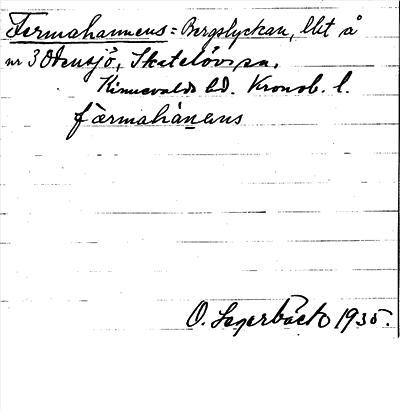 Fermahannens = Bergslyckan, lht å
nr 3 Odensjö, Skatelövs sn,
Kinnevalds hd. Kronob. l.
færmahánens
O. Lagerbäck 1935.